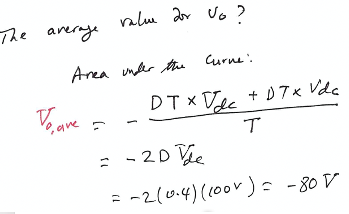 The average value for Vo ?
Area under the curve:
Vo,ave = - (DT × Vdc + DT × Vdc) / T
= - 2D Vdc
= -2(0.4)(100V) = -80 V